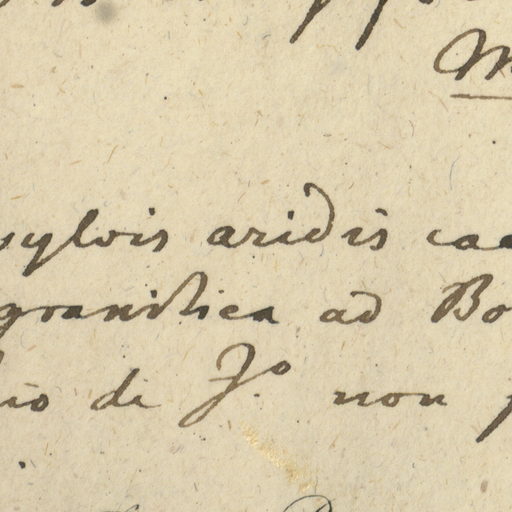 M
sylvis aridis cae
granitica ad Bo
io di Jo. non